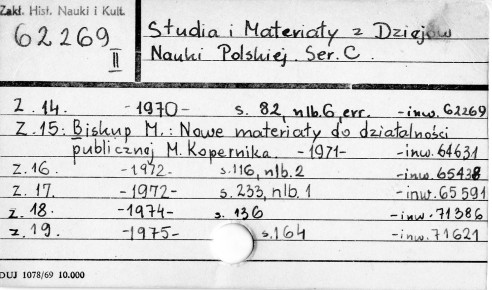 Zakł. Hist. Nauki i Kult.
62269
II
Studia i Materiały z Dziejów
Nauki Polskiej. Ser. C.
Z. 14. -1970- s. 82, nlb. 6, err. -inw. 62269
Z. 15: Biskup M.: Nowe materiały do działalności
publicznej M. Kopernika. -1971- -inw. 64631
Z. 16. -1972- s. 116, nlb. 2 -inw. 65438
Z. 17. -1972- s. 233, nlb. 1 -inw. 65591
z. 18. -1974- s. 136 -inw. 71386
z. 19. -1975- s. 164 -inw. 71621
DUJ 1078/69 10.000